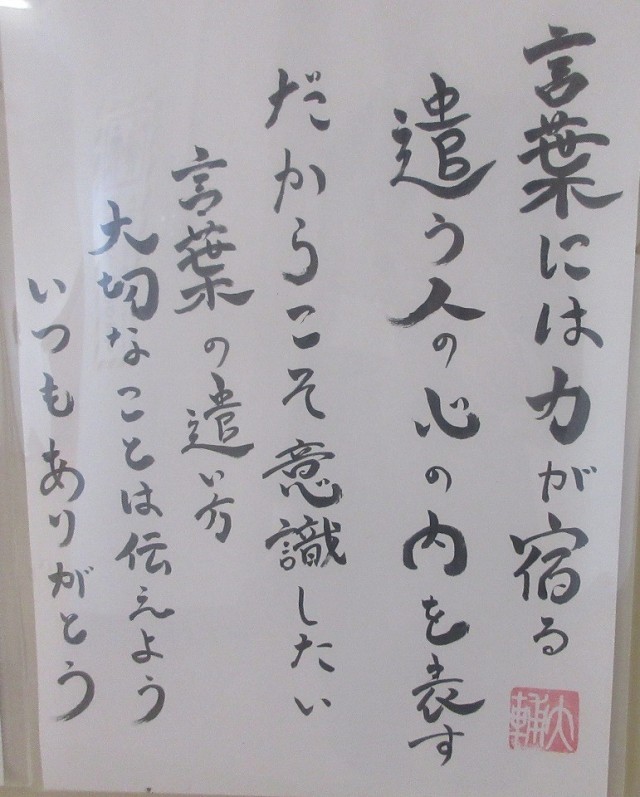 言葉には力が宿る
遣う人の心の内を表す
だからこそ意識したい
言葉の遣い方
大切なことは伝えよう
いつもありがとう
大輔